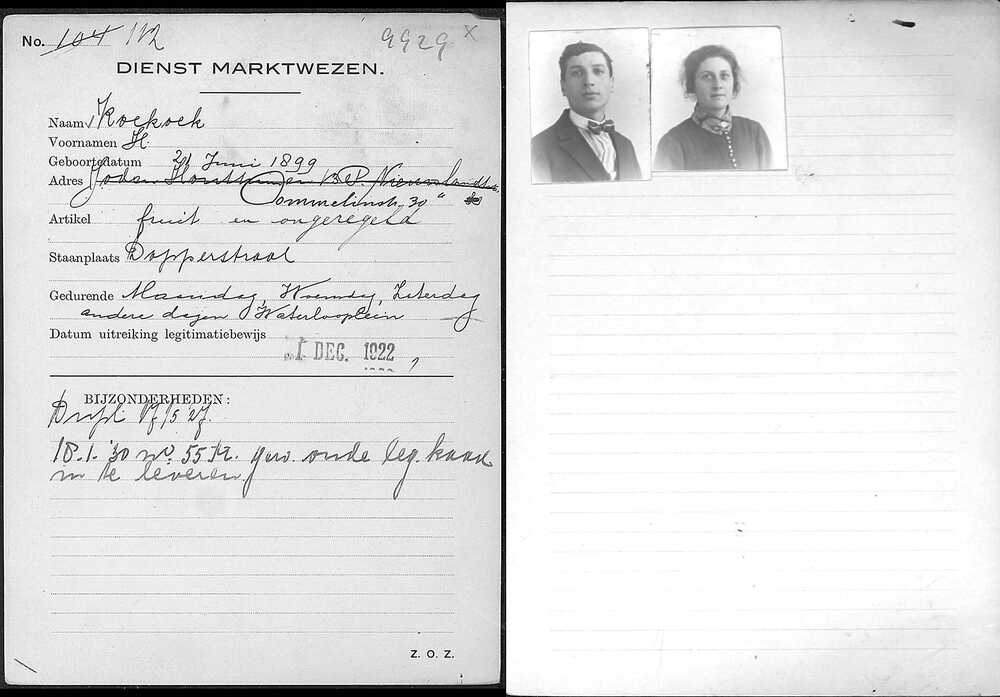 No. 104 112 9929 x
DIENST MARKTWEZEN.
Naam Koekoek
Voornamen H.
Geboortedatum 21 Juni 1899
Adres Joden Houttuinen
Commelinstr. 30
Artikel fruit en ongeregeld
Staanplaats Dapperstraat
Gedurende Maandag, Woensdag, Zaterdag
andere dagen Waterlooplein
Datum uitreiking legitimatiebewijs
1 DEC. 1922
BIJZONDERHEDEN:
Dupl. 17/5 27.
18.1.'30 no. 55 K. gew. oude leg. kaart
in te leveren
Z. O. Z.